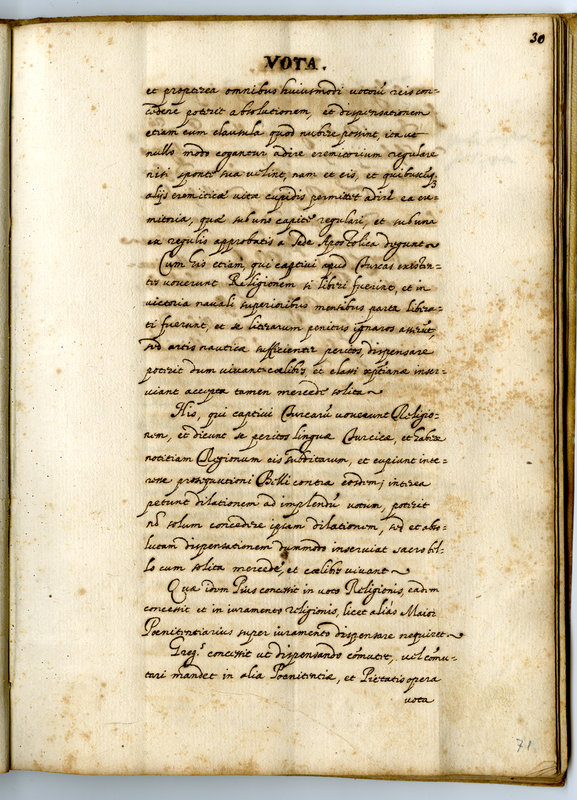 30
VOTA.
et propterea omnibus huiusmodi votorũ reis con-
cedere poterit absolutionem, et dispensationem
etiam cum clausula quod nubere possint, ita ut
nullo modo cogantur adire eremitorium regulare
nisi sponte sua velint, nam et eis, et quibuscũq3
alijs eremiticæ vitæ cupidis permittet adire ea ere-
mitoria, quæ sub uno capite regulari, et sub una
ex regulis approbatis a Sede Apostolica degunt~
Cum his etiam, qui captivi apud Turcas existen-
tes voverunt Religionem si liberi fuerint, et in
victoria navali superioribus mensibus parta libera-
ti fuerunt, et se literarum penitus ignaros asserũt,
sed artis nauticæ sufficienter peritos, dispensare
poterit dum vivant cœlibes, et classi xp̃tianæ inser-
viant accepta tamen mercede solita~
His, qui captivi Turcarũ voverunt Religio-
nem, et dicunt se peritos linguæ Turcicæ, et habere
notitiam Regionum eis subditarum, et cupiunt inte-
resse prosequutioni Belli contra eosdem; interea
petunt dilationem ad implendũ votum, poterit
nõ solum concedere ipsam dilationem, sed et abso-
lutam dispensationem dummodo inserviat sacro bel-
lo cum solita mercede, et cœlibes vivant~
Quæ idem Pius concessit in voto Religionis, eadem
concessit et in iuramento religionis, licet alias Maior
Pœnitentiarius super iuramento dispensare nequiret~
Greg.s concessit ut dispensando cõmutet, vel cõmu-
tari mandet in alia Pœnitentiæ, et Pietatis opera
vota
71